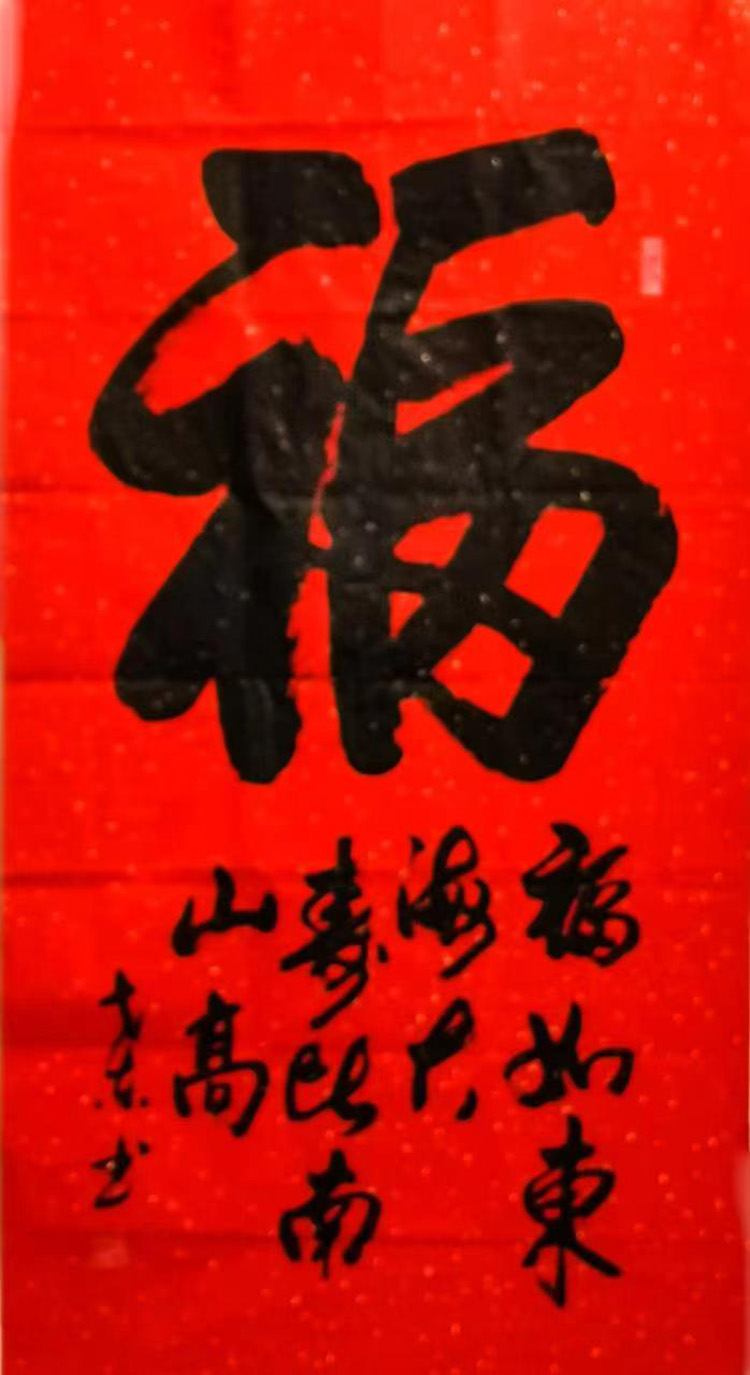 福
福如東
海大
壽比南
山高
书